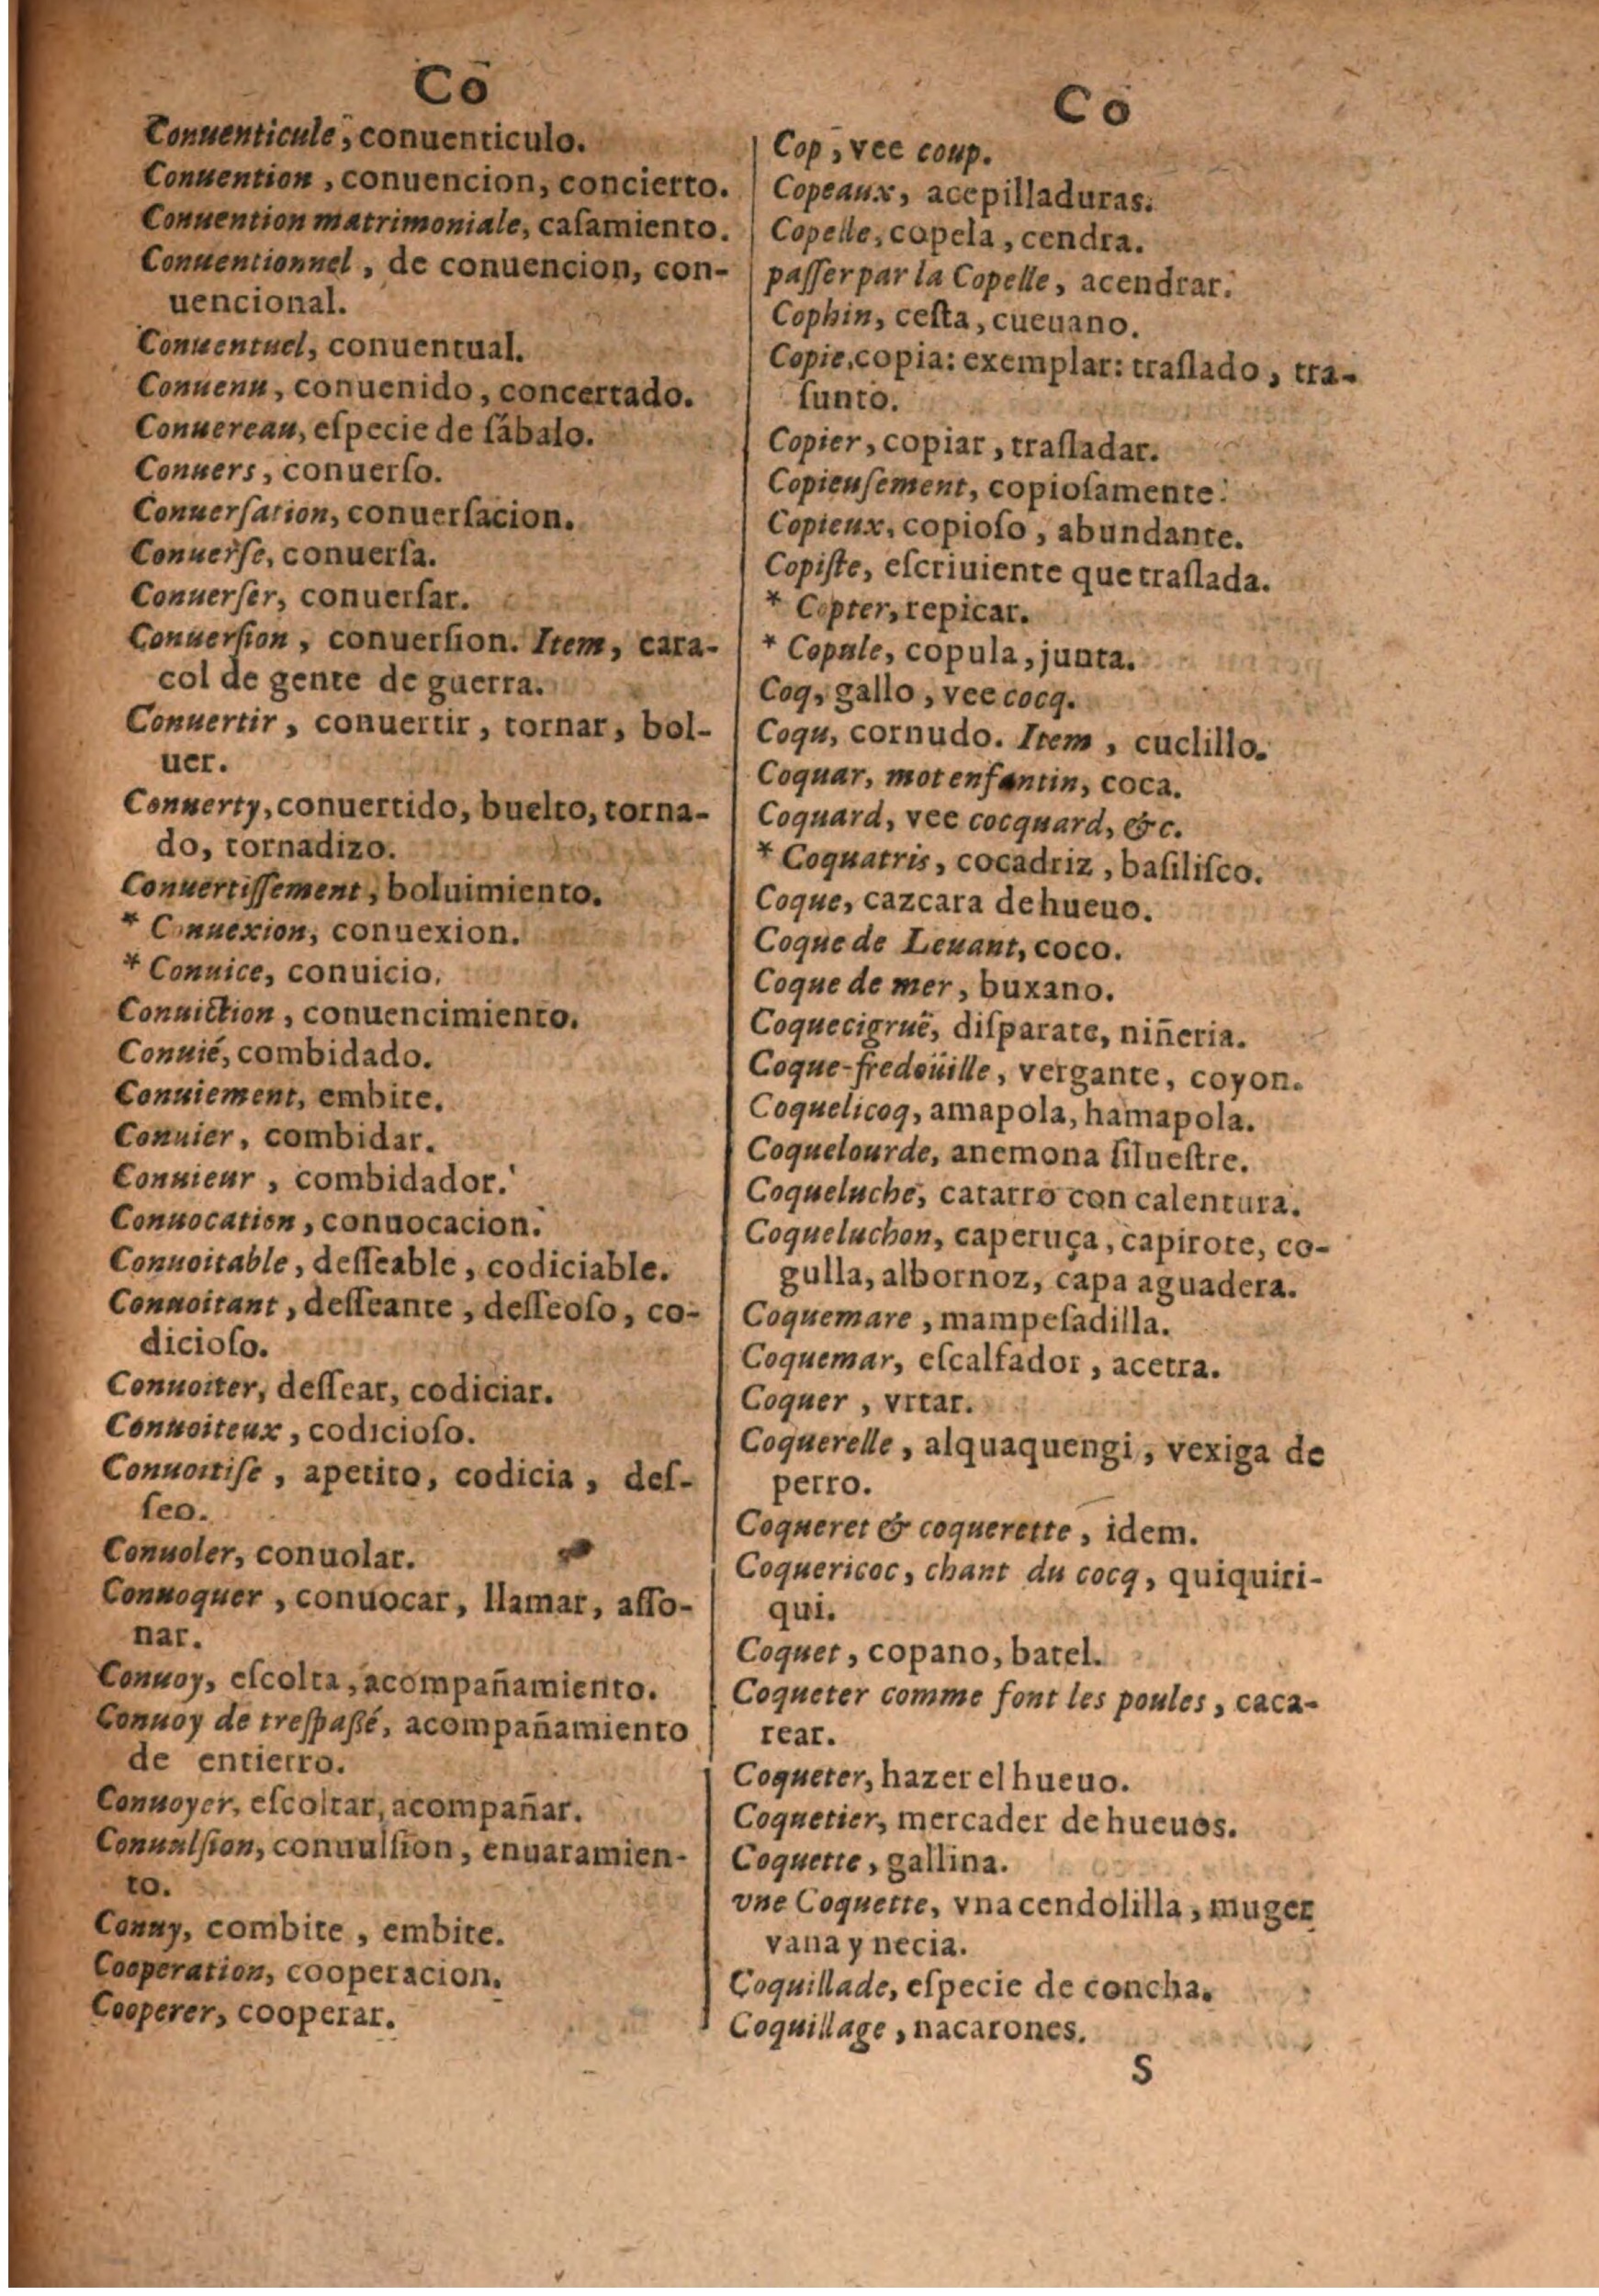 Co
Conuenticule, conuenticulo.
Conuention, conuencion, concierto.
Conuention matrimoniale, caſamiento.
Conuentionnel, de conuencion, con-
uencional.
Conuentuel, conuentual.
Conuenu, conuenido, concertado.
Conuereau, eſpecie de ſábalo.
Conuers, conuerſo.
Conuerſation, conuerſacion.
Conuerſe, conuerſa.
Conuerſer, conuerſar.
Conuerſion, conuerſion. Item, cara-
col de gente de guerra.
Conuertir, conuertir, tornar, bol-
uer.
Conuerty, conuertido, buelto, torna-
do, tornadizo.
Conuertiſſement, boluimiento.
* Conuexion, conuexion.
* Conuice, conuicio.
Conuiction, conuencimiento.
Conuié, combidado.
Conuiement, embite.
Conuier, combidar.
Conuieur, combidador.
Conuocation, conuocacion.
Conuoitable, deſſeable, codiciable.
Conuoitant, deſſeante, deſſeoſo, co-
dicioſo.
Conuoiter, deſſear, codiciar.
Conuoiteux, codicioſo.
Conuoitiſe, apetito, codicia, deſ-
ſeo.
Conuoler, conuolar.
Conuoquer, conuocar, llamar, aſſo-
nar.
Conuoy, eſcolta, acompañamiento.
Conuoy de treſpaßé, acompañamiento
de entierro.
Conuoyer, eſcoltar, acompañar.
Conuulſion, conuulſion, enuaramien-
to.
Conuy, combite, embite.
Cooperation, cooperacion.
Cooperer, cooperar.
Co
Cop, vee coup.
Copeaux, acepilladuras.
Copelle, copela, cendra.
paſſer par la Copelle, acendrar.
Cophin, ceſta, cueuano.
Copie, copia: exemplar: traſlado, tra-
ſunto.
Copier, copiar, traſladar.
Copieuſement, copioſamente.
Copieux, copioſo, abundante.
Copiſte, eſcriuiente que traſlada.
* Copter, repicar.
* Copule, copula, junta.
Coq, gallo, vee cocq.
Coqu, cornudo. Item, cuclillo.
Coquar, mot enfantin, coca.
Coquard, vee cocquard, &c.
* Coquatris, cocadriz, baſiliſco.
Coque, cazcara de hueuo.
Coque de Leuant, coco.
Coque de mer, buxano.
Coquecigruë, diſparate, niñeria.
Coque-fredoüille, vergante, coyon.
Coquelicoq, amapola, hamapola.
Coquelourde, anemona ſilueſtre.
Coqueluche, catarro con calentura.
Coqueluchon, caperuça, capirote, co-
gulla, albornoz, capa aguadera.
Coquemare, mampeſadilla.
Coquemar, eſcalfador, acetra.
Coquer, vrtar.
Coquerelle, alquaquengi, vexiga de
perro.
Coqueret & coquerette, idem.
Coquericoc, chant du cocq, quiquiri-
qui.
Coquet, copano, batel.
Coqueter comme font les poules, caca-
rear.
Coqueter, hazer el hueuo.
Coquetier, mercader de hueuos.
Coquette, gallina.
vne Coquette, vna cendolilla, muger
vana y necia.
Coquillade, eſpecie de concha.
Coquillage, nacarones.
S